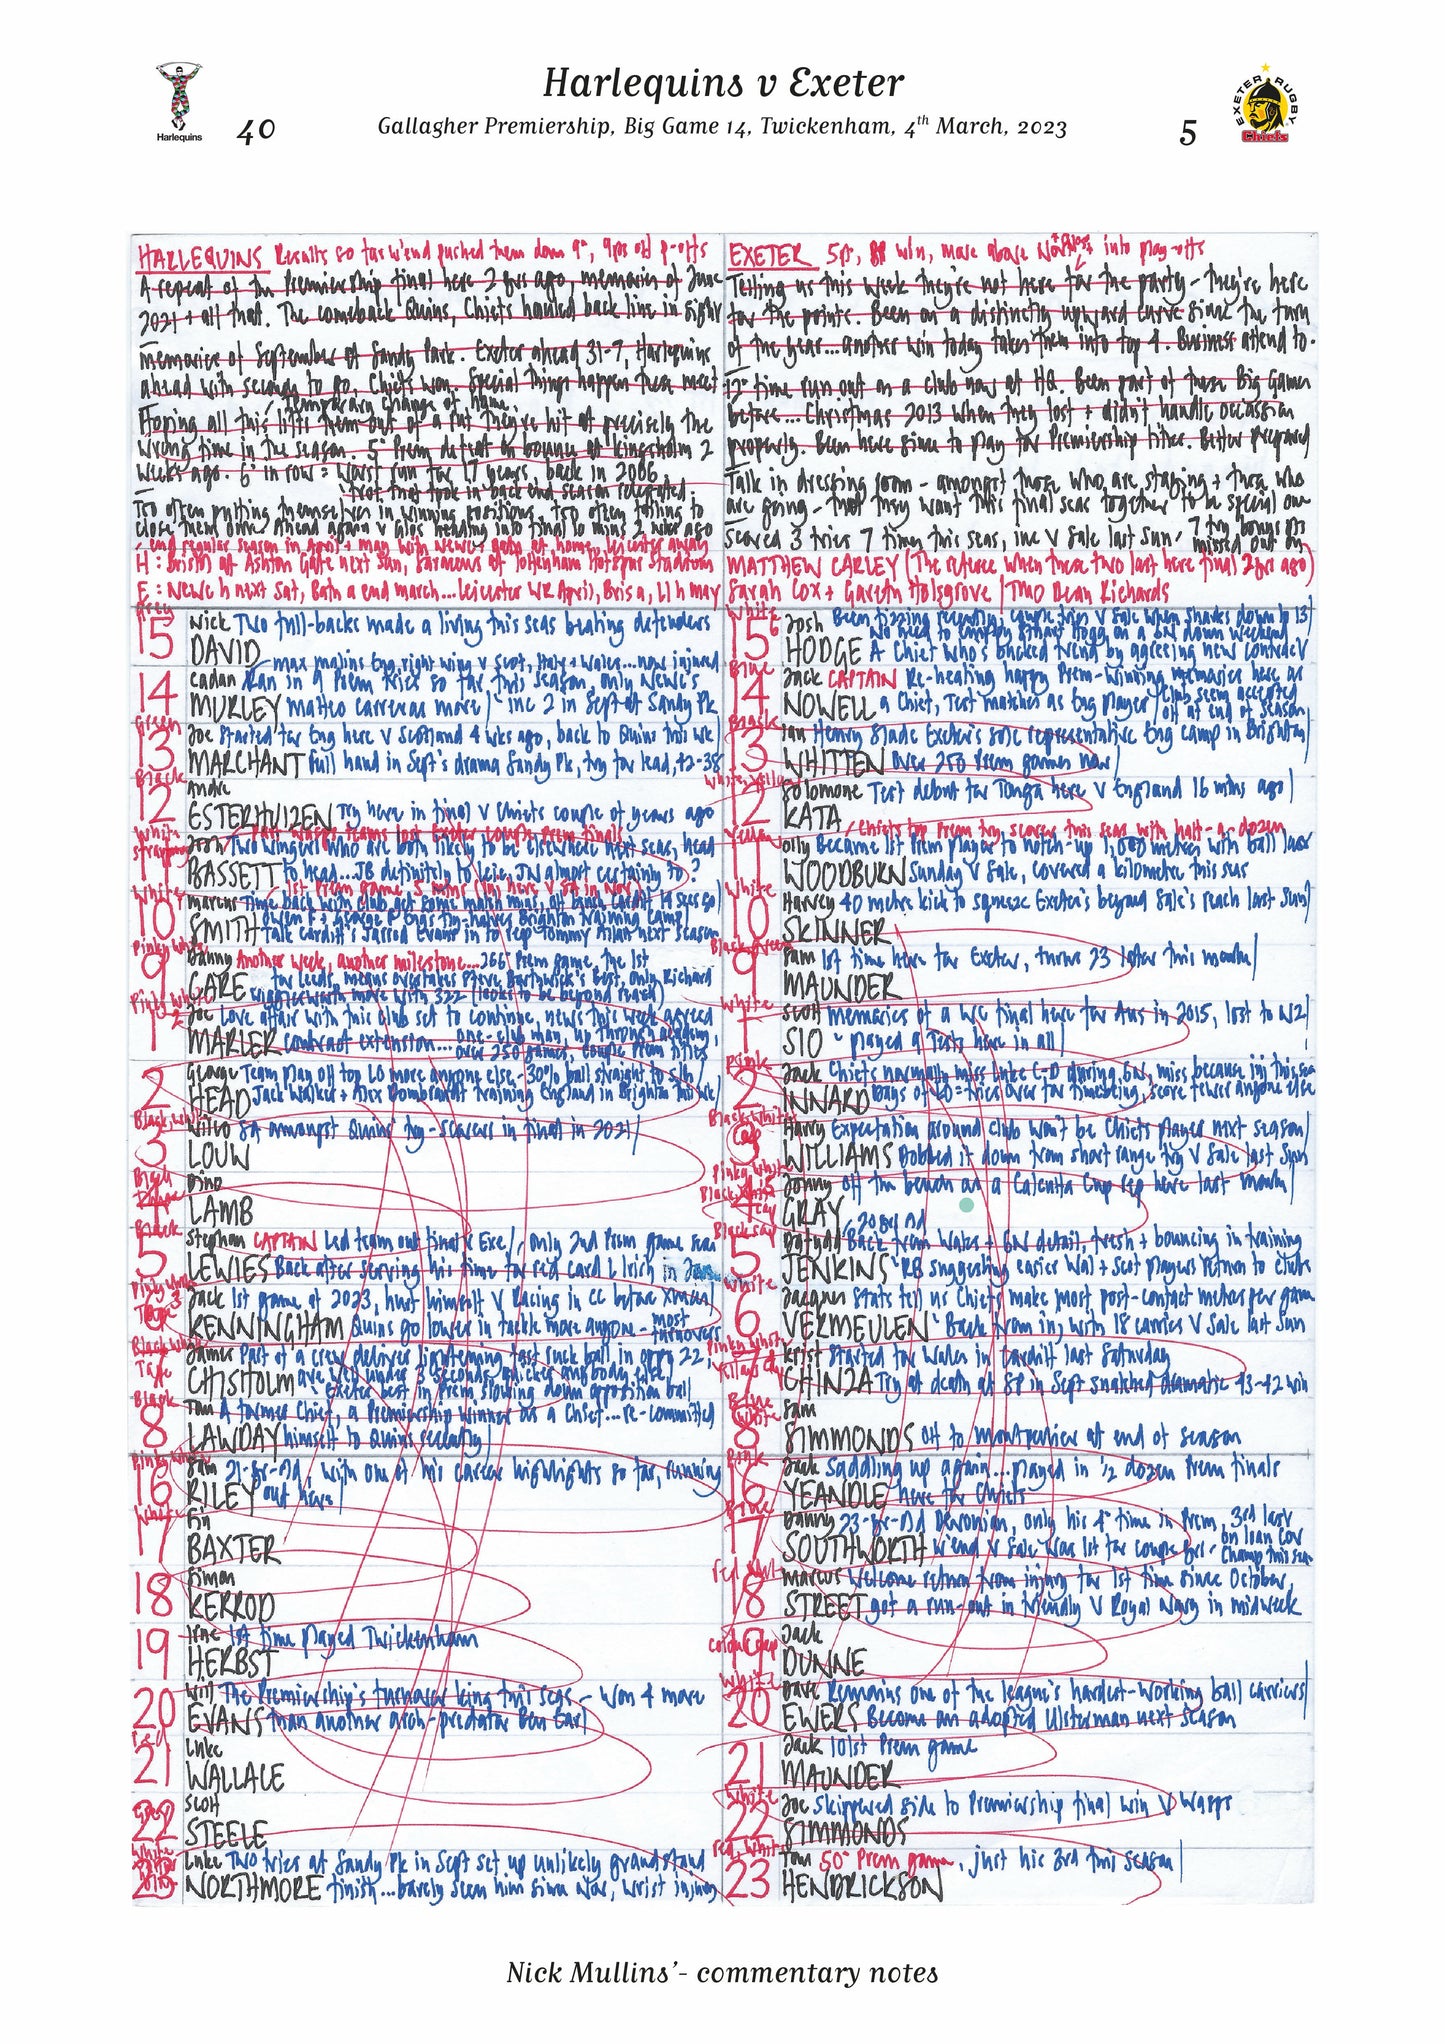 Harlequins v Exeter
Gallagher Premiership, Big Game 14, Twickenham, 4th March, 2023
Harlequins
40
5
EXETER RUGBY
Chiefs
HARLEQUINS Results so far w'end pushed them down 9°, 9pts off p-offs
A repeat of the Premiership final here 2 yrs ago, memories of June
2021 + all that. The comeback Quins, Chiefs hauled back line in sight
Memories of September at Sandy Park. Exeter ahead 31-7, Harlequins
ahead with seconds to go, Chiefs won. Special things happen these meet
temporary change of home
Hoping all this lifts them out of a rut they've hit at precisely the
wrong time in the season. 5° Prem defeat on bounce at Kingsholm 2
weeks ago. 6° in row = worst run for 17 years, back in 2006
that took in back end season relegated.
Too often putting themselves in winning positions, too often failing to
close them down. Ahead again v Glos heading into final 10 mins 2 wks ago
end regular season in April + May with Newc + Bath at home, Leicester away
H: Bristol at Ashton Gate next Sun, Saracens at Tottenham Hotspur Stadium
E: Newc h next Sat, Bath a end march...Leicester WR April, Bris a, LI h May
EXETER 5pt, win, move above into play-offs
Telling us this week they're not here for the party - they're here
for the points. Been on a distinctly upward curve since the turn
of the year...another win today takes them into top 4. Business attend to.
12° time run out as a club now at HQ. Been part of these Big Games
before... Christmas 2013 when they lost + didn't handle occasion
properly. Been here since to play for Premiership titles. Better prepared
Talk in dressing room - amongst those who are staying + those who
are going - that they want this final seas together to be special one
Scored 3 tries 7 times this seas, inc v Sale last Sun
7 try bonus pts missed out on
MATTHEW CARLEY (The referee when these two last here final 2 yrs ago)
Sarah Cox + Gareth Holsgrove | TMO Dean Richards
Grey
15 Nick Two full-backs made a living this seas beating defenders
DAVID
max malins Eng right wing v Scot, Italy + Wales...now injured
14 Cadan Ran in 9 Prem tries so far this season, only Newc's
MURLEY matteo carreras more | inc 2 in Sept at Sandy Pk
Green
13 Joe Started for Eng here v Scotland 4 wks ago, back to Quins this wk
MARCHANT Full hand in Sept's drama Sandy Pk, try for lead, 42-38
Black
12 Andre
ESTERHUIZEN Try here in final v Chiefs couple of years ago
Past wasps teams lost Exeter couple prem finals
White
11 Josh Two wingers who are both likely to be elsewhere next seas, head
BASSETT to head...JB definitely to Leic, JN almost certainly to?
1st Prem game. 5 mins (inj here v SA in Nov)
White
10 marcus Time back with club get some match mins, off bench Cardiff 14 secs go
Owen F + George F Eng's fly-halves Brighton training camp
SMITH Talk Cardiff's Jarrod Evans in to rep Tommy Allan next season
Pinky White
9 Danny Another week, another milestone...266° Prem game, the 1st
for Leeds, means overtakes Steve Borthwick's best, only Richard
CARE Wigglesworth more with 322 (looks to be beyond reach)
Pinky White
1 Joe Love affair with this club set to continue, news this week agreed
MARLER contract extension... one-club man, up through academy,
over 250 games, couple Prem titles
2 George Team play off top LO more anyone else - 30% ball straight to
HEAD Jack Walker + Alex Dombrandt training England in Brighton this wk
Black White
3 Wilco SA amongst Quins' try-scorers in final in 2021
LOUW
Black
4 Dino
LAMB
Black
5 Stephan CAPTAIN Led team out final v Exe, only 2nd Prem game seas
LEWIES Back after serving his time for red card L Irish in Jan
Pinky White
Tape
6 Jack 1st game of 2023, hurt himself v Racing in CC before Xmas
KENNINGHAM Quins go lower in tackle more anyone - most turnovers
Black White
Tape
7 James Part of a crew delivers lightening fast ruck ball in opps 22,
CHISHOLM ave well under 3 seconds, quicker anybody else
Exeter best in Prem slowing down opposition ball
Black
8 Tom A former Chief, a Premiership winner as a Chief...re-committed
LAWDAY himself to Quins recently
Pinky White
16 Sam 21-yr-old, with one of his career highlights so far, running
RILEY out here
White
17 Fin
BAXTER
18 Simon
KERROD
19 Irne 1st time played Twickenham
HERBST
20 Will The Premiership's turnover king this seas - won 4 more
EVANS than another arch-predator Ben Earl
Red
21 Luke
WALLACE
Grey
22 Scott
STEELE
White
23 Luke Two tries at Sandy Pk in Sept set up unlikely grandstand
NORTHMORE finish...barely seen him since Nov, wrist injury
White
15 Josh Been fizzing recently, couple tries v Sale when Sharks down to 13
No need to employ Stuart Hogg on a 6N down weekend
HODGE A Chief who's bucked trend by agreeing new contract
Blue
14 Jack CAPTAIN Re-heating happy Prem-winning memories here as
NOWELL a Chief, Test matches as Eng player | club seem accepted
off at end of season
Black
13 Ian Henry Slade Exeter's sole representative Eng camp in Brighton
WHITTEN Over 250 Prem games now
White Yellow
12 Solomone Test debut for Tonga here v England 16 mths ago
KATA
Chiefs top Prem try scorer this seas with half-a-dozen
Yellow
11 Olly Became 1st Prem player to notch-up 1,000 metres with ball last
WOODBURN Sunday v Sale, covered a kilometre this seas
White
10 Harvey 40 metre kick to squeeze Exeter's beyond Sale's reach last Sun
SKINNER
Black Green
9 Sam 1st time here for Exeter, turns 23 later this month
MAUNDER
White
1 Scott memories of a WC final here for Aus in 2015, lost to NZ
SIO played 9 Tests here in all
Pink
2 Jack
INNARD
Black White
Cap
3 Harry Expectation around club won't be Chiefs player next season
WILLIAMS Dobbed it down from short range try v Sale last Sun
Pinky White
4 Jonny Off the bench as a Calcutta Cup rep here last month
GRAY
20 yr old
5 Dafydd Back from Wales + 6N detail, fresh + bouncing in training
JENKINS RB suggesting easier Wal + Scot players return to clubs
White
6 Jacques Stats tell us Chiefs make most post-contact metres per game
VERMEULEN Back from inj with 18 carries v Sale last Sun
Pinky White
7 Christ Started for Wales in Cardiff last Saturday
TSHIUNZA Try at death at SP in Sept snatched dramatic 43-42 win
Blue
White
8 Sam
SIMMONDS Off to Montpellier at end of season
Pink
16 Jack Saddling up again...played in ½ dozen Prem finals
YEANDLE here for Chiefs
Blue
17 Danny 23-yr-old Devonian, only his 4° time in Prem, 3rd last
SOUTHWORTH w'end v Sale was 1st for couple yrs - on loan Cov
Champ this seas
Red White
18 Marcus Welcome return from injury for 1st time since October,
STREET got a run-out in friendly v Royal Navy in midweek
19 Jack
DUNNE
White
20 Dave Remains one of the league's hardest-working ball carriers
EWERS Become an adopted Ulsterman next season
21 Jack 101st Prem game
MAUNDER
White
22 Joe Skippered side to Premiership final win v Wasps
SIMMONDS
Red, White
23 Tom 50° Prem game, just his 3rd this season
HENDRICKSON
Nick Mullins'- commentary notes